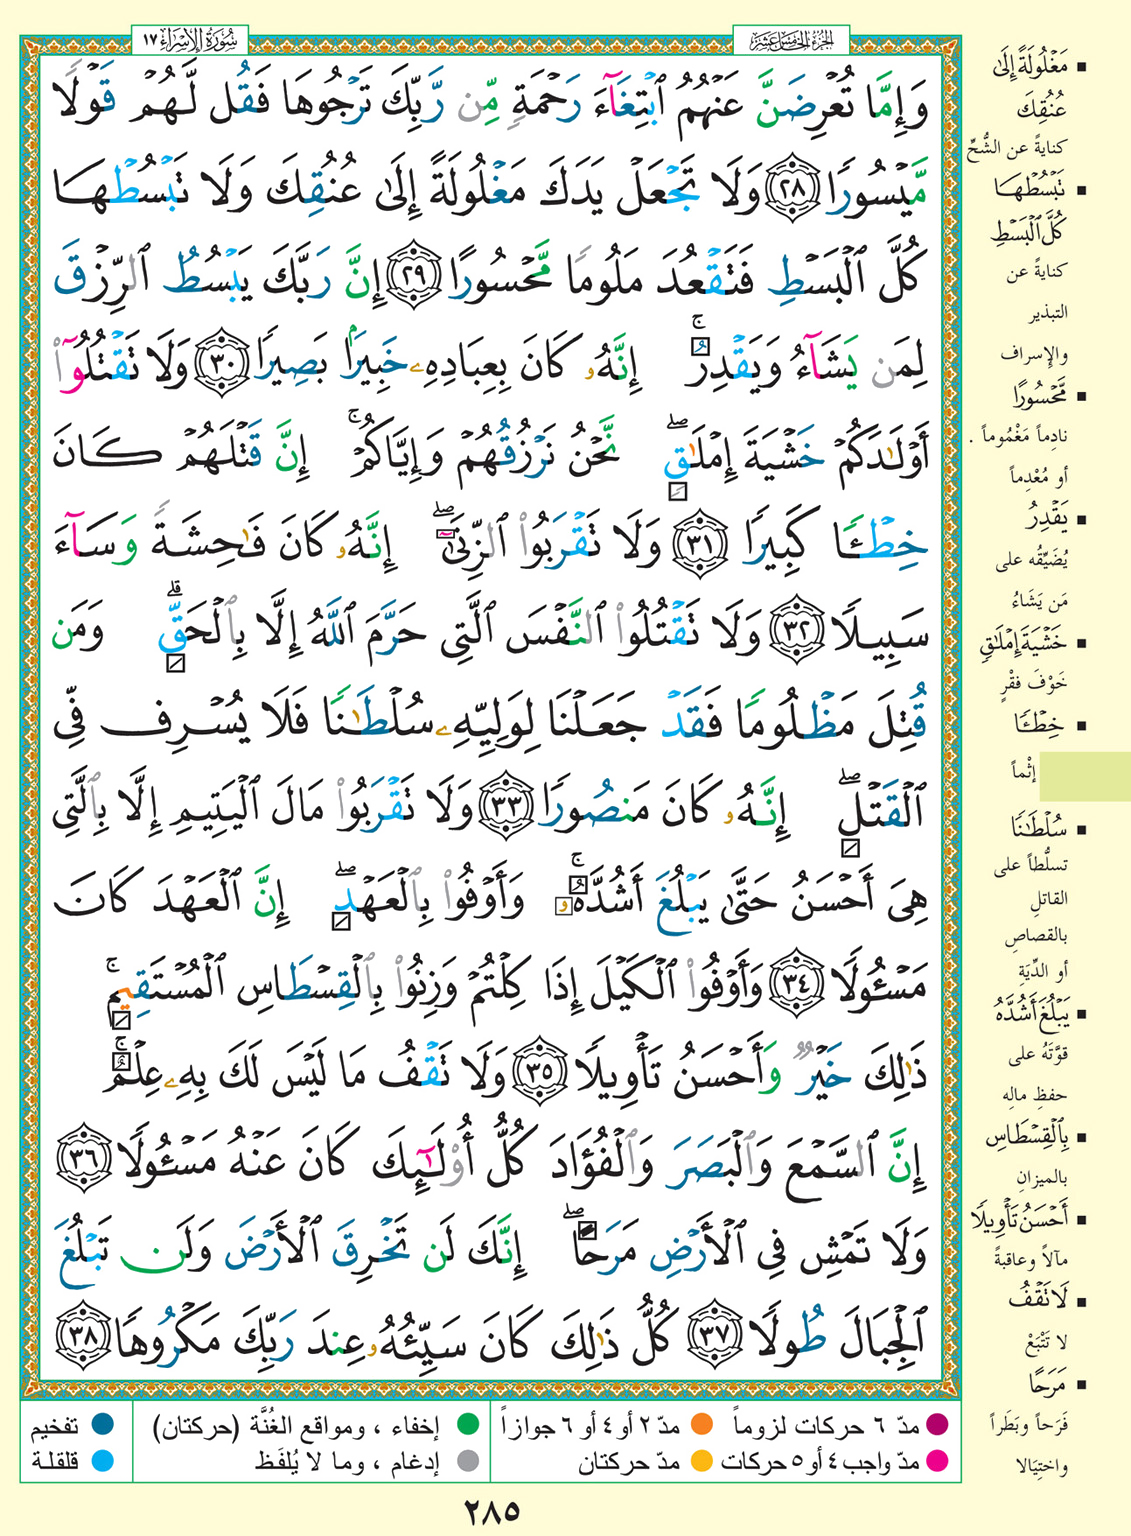 الجزء الخامس عشر
سُورَةُ الإِسْرَاءِ ١٧
وَإِمَّا تُعْرِضَنَّ عَنْهُمُ ٱبْتِغَآءَ رَحْمَةٍ مِّن رَّبِّكَ تَرْجُوهَا فَقُل لَّهُمْ قَوْلًا
مَّيْسُورًا ٢٨ وَلَا تَجْعَلْ يَدَكَ مَغْلُولَةً إِلَىٰ عُنُقِكَ وَلَا تَبْسُطْهَا
كُلَّ ٱلْبَسْطِ فَتَقْعُدَ مَلُومًا مَّحْسُورًا ٢٩ إِنَّ رَبَّكَ يَبْسُطُ ٱلرِّزْقَ
لِمَن يَشَآءُ وَيَقْدِرُ ۚ إِنَّهُۥ كَانَ بِعِبَادِهِۦ خَبِيرًۢا بَصِيرًا ٣٠ وَلَا تَقْتُلُوٓا۟
أَوْلَـٰدَكُمْ خَشْيَةَ إِمْلَـٰقٍ ۖ نَّحْنُ نَرْزُقُهُمْ وَإِيَّاكُمْ ۚ إِنَّ قَتْلَهُمْ كَانَ
خِطْـًٔا كَبِيرًا ٣١ وَلَا تَقْرَبُوا۟ ٱلزِّنَىٰٓ ۖ إِنَّهُۥ كَانَ فَـٰحِشَةً وَسَآءَ
سَبِيلًا ٣٢ وَلَا تَقْتُلُوا۟ ٱلنَّفْسَ ٱلَّتِى حَرَّمَ ٱللَّهُ إِلَّا بِٱلْحَقِّ ۗ وَمَن
قُتِلَ مَظْلُومًا فَقَدْ جَعَلْنَا لِوَلِيِّهِۦ سُلْطَـٰنًا فَلَا يُسْرِف فِّى
ٱلْقَتْلِ ۖ إِنَّهُۥ كَانَ مَنصُورًا ٣٣ وَلَا تَقْرَبُوا۟ مَالَ ٱلْيَتِيمِ إِلَّا بِٱلَّتِى
هِىَ أَحْسَنُ حَتَّىٰ يَبْلُغَ أَشُدَّهُۥ ۚ وَأَوْفُوا۟ بِٱلْعَهْدِ ۖ إِنَّ ٱلْعَهْدَ كَانَ
مَسْـُٔولًا ٣٤ وَأَوْفُوا۟ ٱلْكَيْلَ إِذَا كِلْتُمْ وَزِنُوا۟ بِٱلْقِسْطَاسِ ٱلْمُسْتَقِيمِ ۚ
ذَٰلِكَ خَيْرٌ وَأَحْسَنُ تَأْوِيلًا ٣٥ وَلَا تَقْفُ مَا لَيْسَ لَكَ بِهِۦ عِلْمٌ ۚ
إِنَّ ٱلسَّمْعَ وَٱلْبَصَرَ وَٱلْفُؤَادَ كُلُّ أُو۟لَـٰٓئِكَ كَانَ عَنْهُ مَسْـُٔولًا ٣٦
وَلَا تَمْشِ فِى ٱلْأَرْضِ مَرَحًا ۖ إِنَّكَ لَن تَخْرِقَ ٱلْأَرْضَ وَلَن تَبْلُغَ
ٱلْجِبَالَ طُولًا ٣٧ كُلُّ ذَٰلِكَ كَانَ سَيِّئُهُۥ عِندَ رَبِّكَ مَكْرُوهًا ٣٨
مَغْلُولَةً إِلَىٰ
عُنُقِكَ
كنايةً عن الشُّحِّ
تَبْسُطْهَا
كُلَّ ٱلْبَسْطِ
كنايةً عن
التبذير
والإسراف
مَّحْسُورًا
نادِماً مَغْمُوماً .
أو مُعْدِماً
يَقْدِرُ
يُضَيِّقُه على
مَن يَشَاءُ
خَشْيَةَ إِمْلَـٰقٍ
خَوْفَ فقْرٍ
خِطْـًٔا
إثْماً
سُلْطَـٰنًا
تسلُّطاً على
القاتلِ
بالقصاصِ
أو الدِّيَةِ
يَبْلُغَ أَشُدَّهُ
قوَّتَهُ على
حفظِ مالِه
بِٱلْقِسْطَاسِ
بالميزانِ
أَحْسَنُ تَأْوِيلًا
مآلاً وعاقبةً
لَا تَقْفُ
لا تَتْبَعْ
مَرَحًا
فَرَحاً وبَطَراً
واختِيَالا
مدّ ٦ حركات لزوماً
مدّ ٢ أو ٤ أو ٦ جوازاً
إخفاء ، ومواقع الغُنَّة (حركتان)
تفخيم
مدّ واجب ٤ أو ٥ حركات
مدّ حركتان
إدغام ، وما لا يُلفَظ
قلقلة
٢٨٥